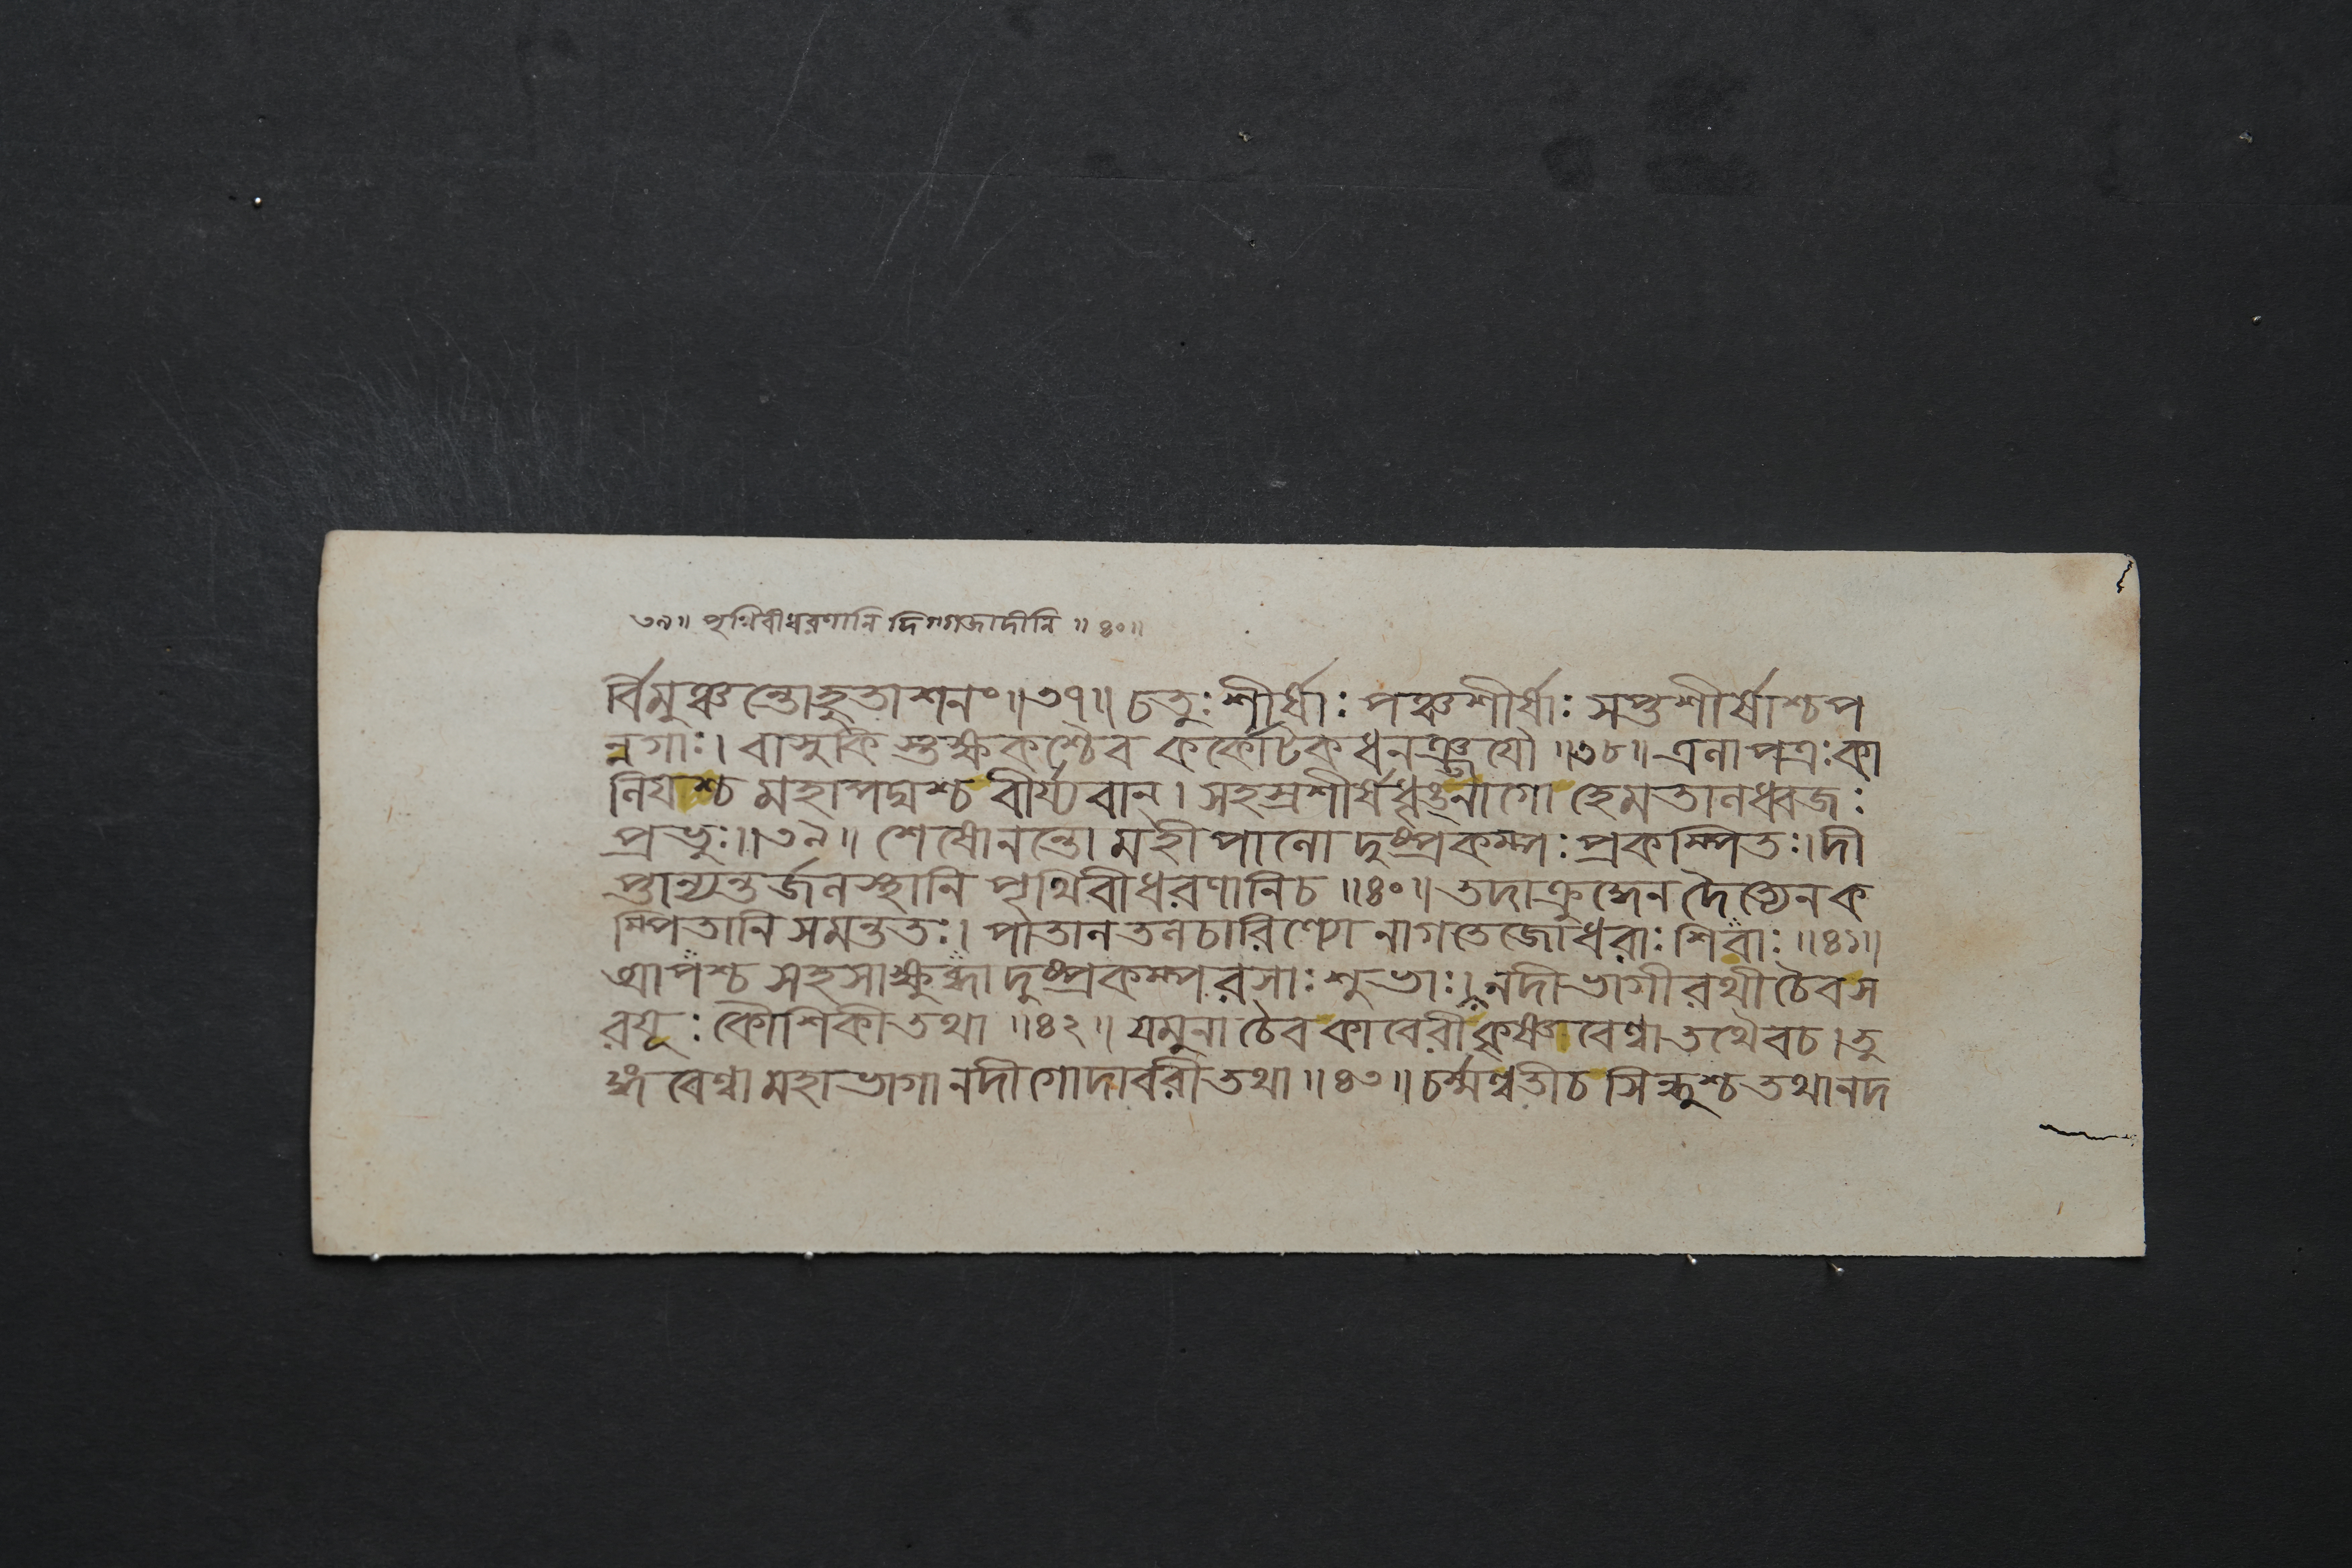 ৩৯॥ পৃথিবীধরণানি দিগ্গজাদীনি ॥৪০॥
র্বিমুঞ্চন্তোহুতাশনং॥৩৭॥ চতুঃশীর্ষাঃ পঞ্চশীর্ষাঃ সপ্তশীর্ষাশ্চপ
ন্নগাঃ। বাসুকি স্তক্ষকশ্চৈব কর্কোটকধনঞ্জযৌ ॥৩৮॥ এলাপত্রঃকা
লিযশ্চ মহাপদ্মশ্চ বীর্য্যবান্। সহস্রশীর্ষধৃঙ্নাগো হেমতালধ্বজঃ
প্রভুঃ॥৩৯॥ শেষোনন্তো মহীপালো দুষ্প্রকম্পঃ প্রকম্পিতঃ।দী
প্তান্যন্তর্জলস্থানি পৃথিবীধরণানিচ ॥৪০॥ তদাক্রুদ্ধেন দৈত্যেনক
ম্পিতানি সমন্ততঃ। পাতালতলচারিণ্যো নাগতেজোধরাঃ শিবাঃ ॥৪১॥
আপশ্চ সহসাক্ষুব্ধা দুষ্প্রকম্পরসাঃ শুভাঃ। নদীভাগীরথীচৈবস
রযূঃ কৌশিকীতথা ॥৪২॥ যমুনাচৈব কাবেরীকৃষ্ণাবেণ্বা তথৈবচ। তু
ঙ্গবেণ্বা মহাভাগা নদীগোদাবরীতথা ॥৪৩॥ চর্ম্মণ্বতীচ সিন্ধুশ্চ তথানদ